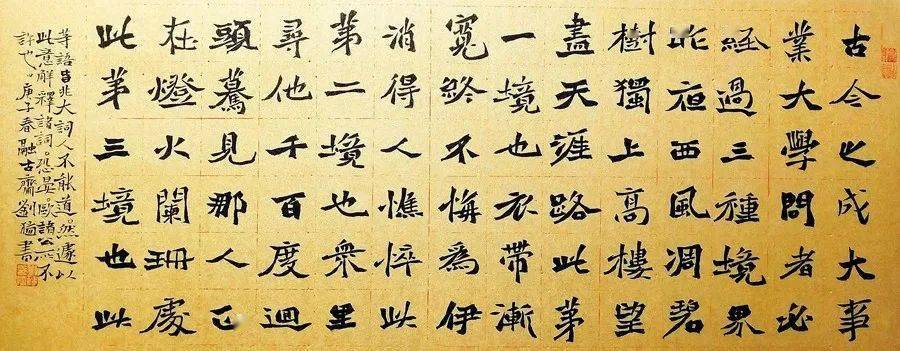 古今之成大事
業大學問者必
經過三種境界
昨夜西風凋碧
樹獨上高樓望
盡天涯路此第
一境也衣帶漸
寬終不悔爲伊
消得人憔悴此
第二境也衆里
尋他千百度迴
頭驀見那人正
在燈火闌珊處
此第三境也此
等語皆非大詞人不能道。然遽以
此意解釋諸詞。恐晏。歐諸公所不
許也。庚子春融古齋劉書